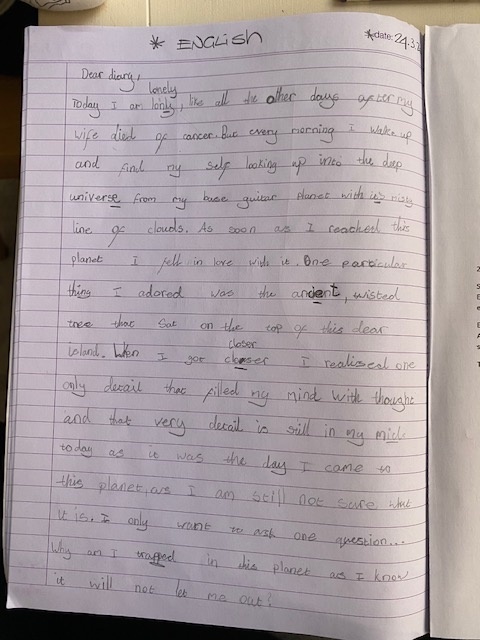 * ENGLISH
*date: 24.3.
Dear diary,
lonely
Today I am lonly, like all the other days after my
wife died of cancer. But every morning I wake up
and find my self looking up into the deep
universe from my base guitar planet with its misty
line of clouds. As soon as I reached this
planet I fell in love with it. One particular
thing I adored was the ancient, wisted
tree that sat on the top of this dear
island. When I got closer I realised one
closer
only detail that filled my mind with thought
and that very detail is still in my
today as it was the day I came to
this planet, as I am still not sure what
it is. I only want to ask one question...
Why am I trapped in this planet as I know
it will not let me out!